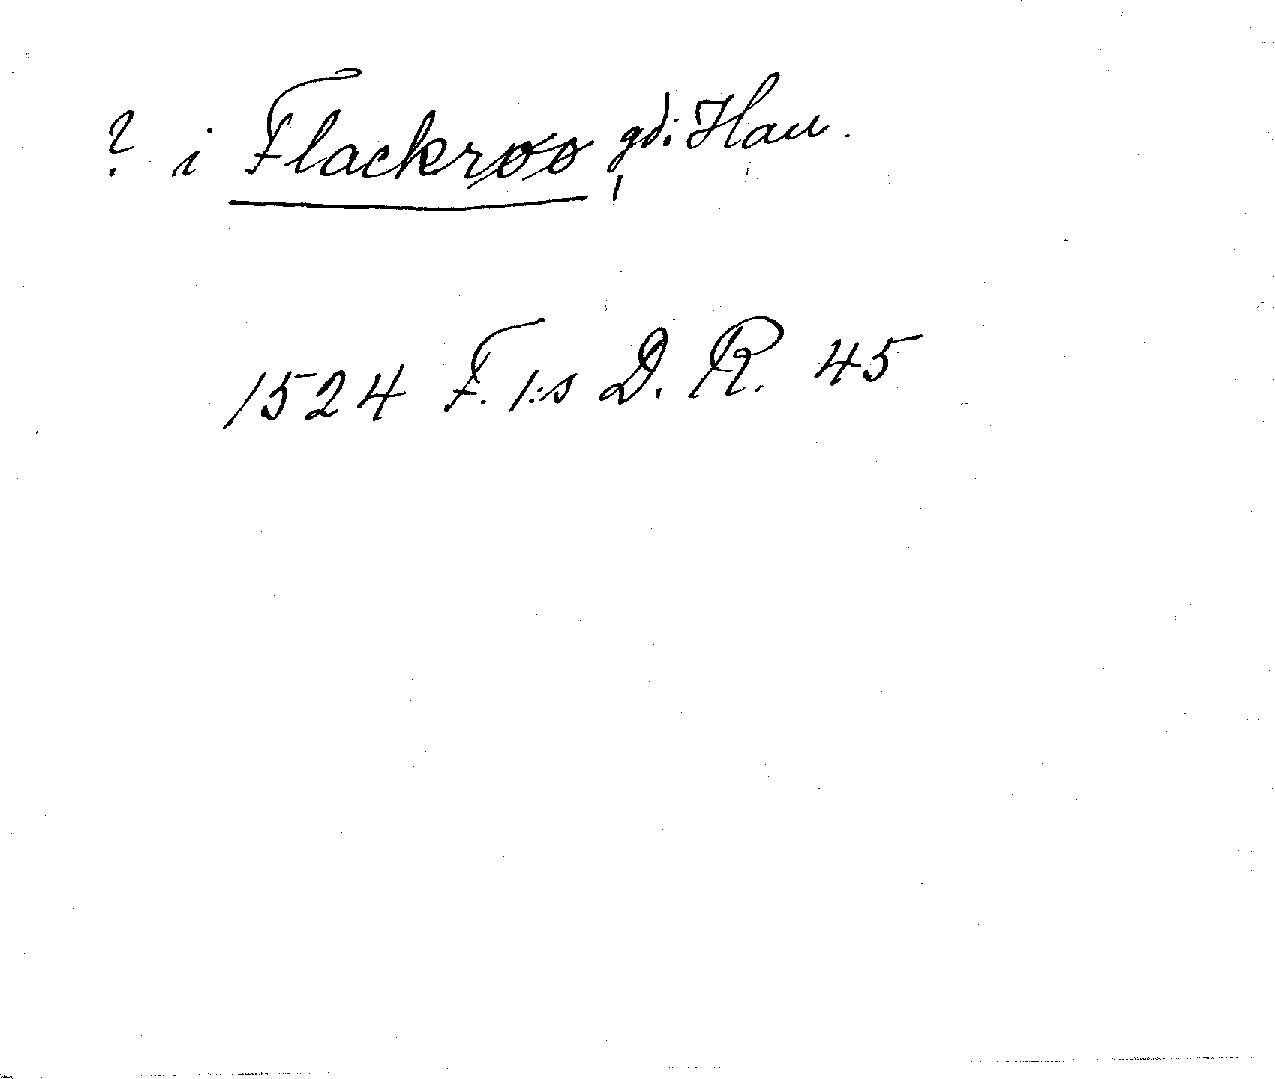 ? i Flackrøø gd i Hau.
1524 F. 1:s D. R. 45